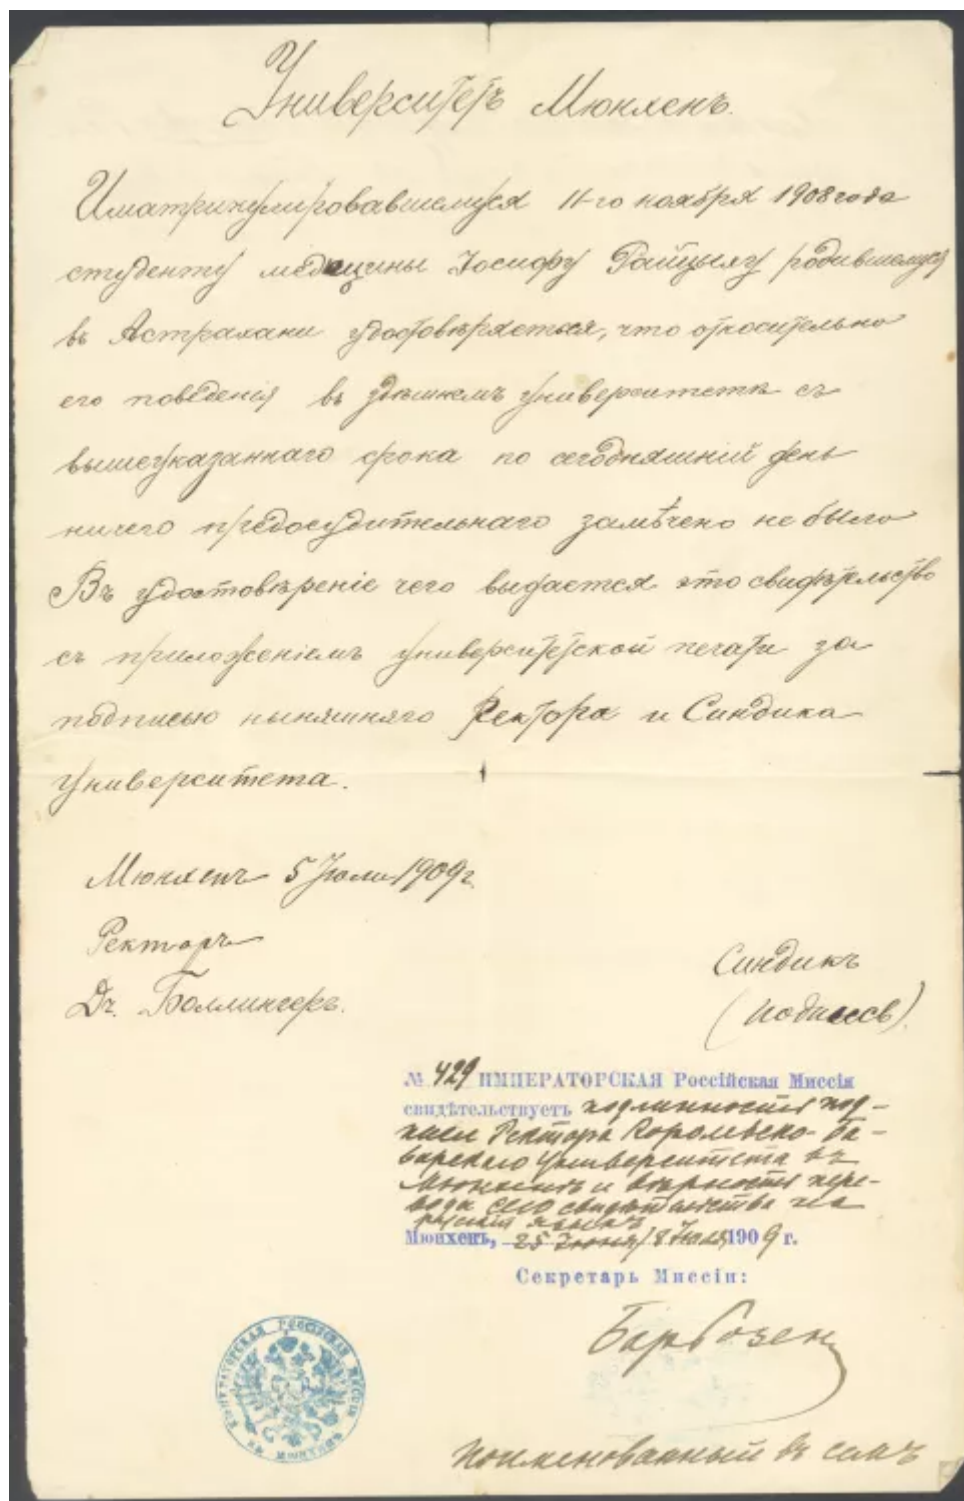 Университетъ Мюнхенъ.
Иматрикулировавшемуся 11-го ноября 1908 года
студенту медицины Іосифу Райцыху родившемуся
въ Астрахани удостовѣряется, что относительно
его поведенія въ здѣшнемъ университетѣ съ
вышеуказаннаго срока по сегодняшній день
ничего предосудительнаго замѣчено не было
Въ удостовѣреніе чего выдается это свидѣтельство
съ приложеніемъ университетской печати за
подписью нынѣшняго Ректора и Синдика
университета.
Мюнхенъ 5 Іюли 1909 г.
Ректоръ
Др. Боллингеръ.
Синдикъ
(подпись).
№ 429 ИМПЕРАТОРСКАЯ Россійская Миссія
свидѣтельствуетъ подлинность под-
писи Ректора Королевско-Ба-
варскаго Университета въ
Мюнхенѣ и вѣрность пере-
вода сего свидѣтельства на
русскій языкъ
Мюнхенъ, 25 Іюня/8 Іюля 1909 г.
Секретарь Миссіи:
ИМПЕРАТОРСКАЯ РОССІЙСКАЯ МИССІЯ
ВЪ МЮНХЕНѢ
поименованный въ семъ